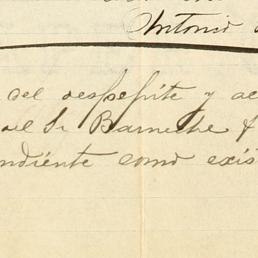 Antonio
del despepite y ac
al Sr Barneche y
ndiente como exis